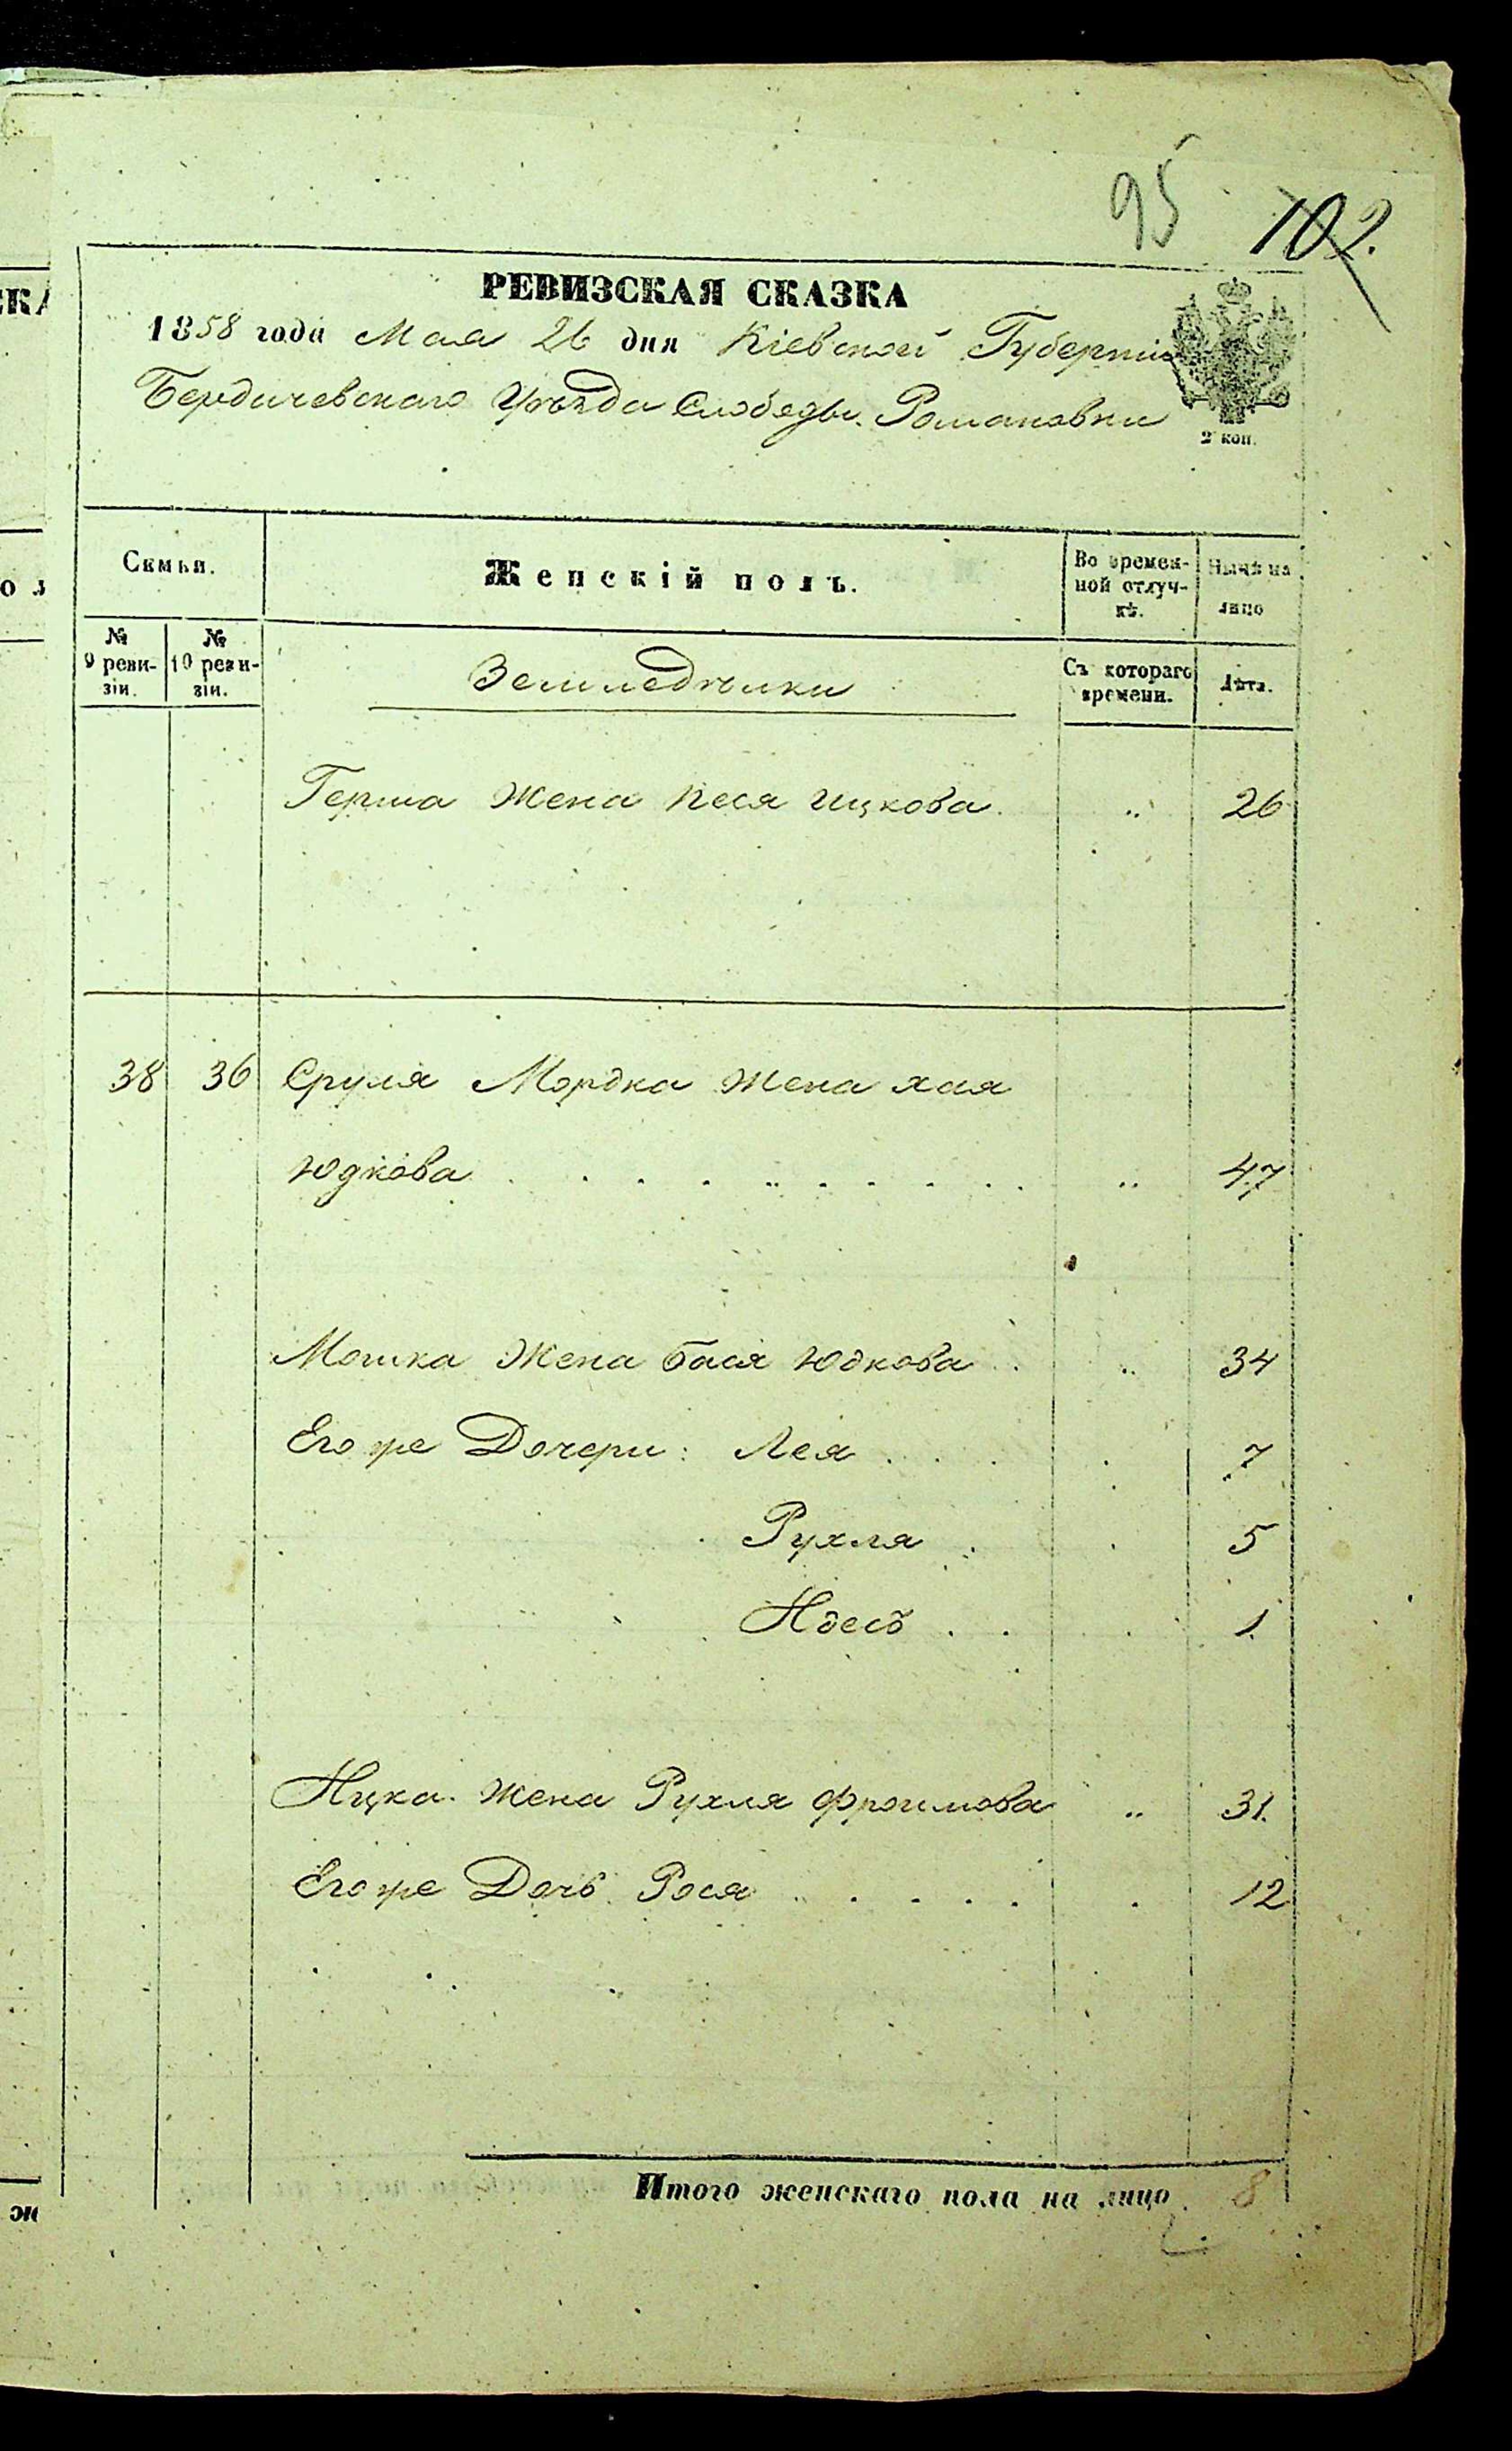 95 102.
РЕВИЗСКАЯ СКАЗКА
1858 года Мая 26 дня Кіевской Губерніи
Бердичевскаго Уѣзда Слободы Романовки
2 коп.
Семьи.
Женскій полъ.
Во времен-
ной отлуч-
кѣ.
Нынѣ на
лицо
№
9 реви-
зіи.
№
10 реви-
зіи.
Земледѣльки
Съ котораго
времени.
Лѣта.
Герша жена Песя Ицкова. „ 26
38 36 Сруля Мордка жена хая
Юдкова . . . . . . . . . „ 47
Мошка жена Бася Юдкова . „ 34
Его же Дочери: Лея . . . 7
Рухля . . 5
Идесь . . . 1
Ицка жена Рухля Фроимова „ 31
Его же Дочь Рося . . . . . 12
Итого женскаго пола на лицо. 8